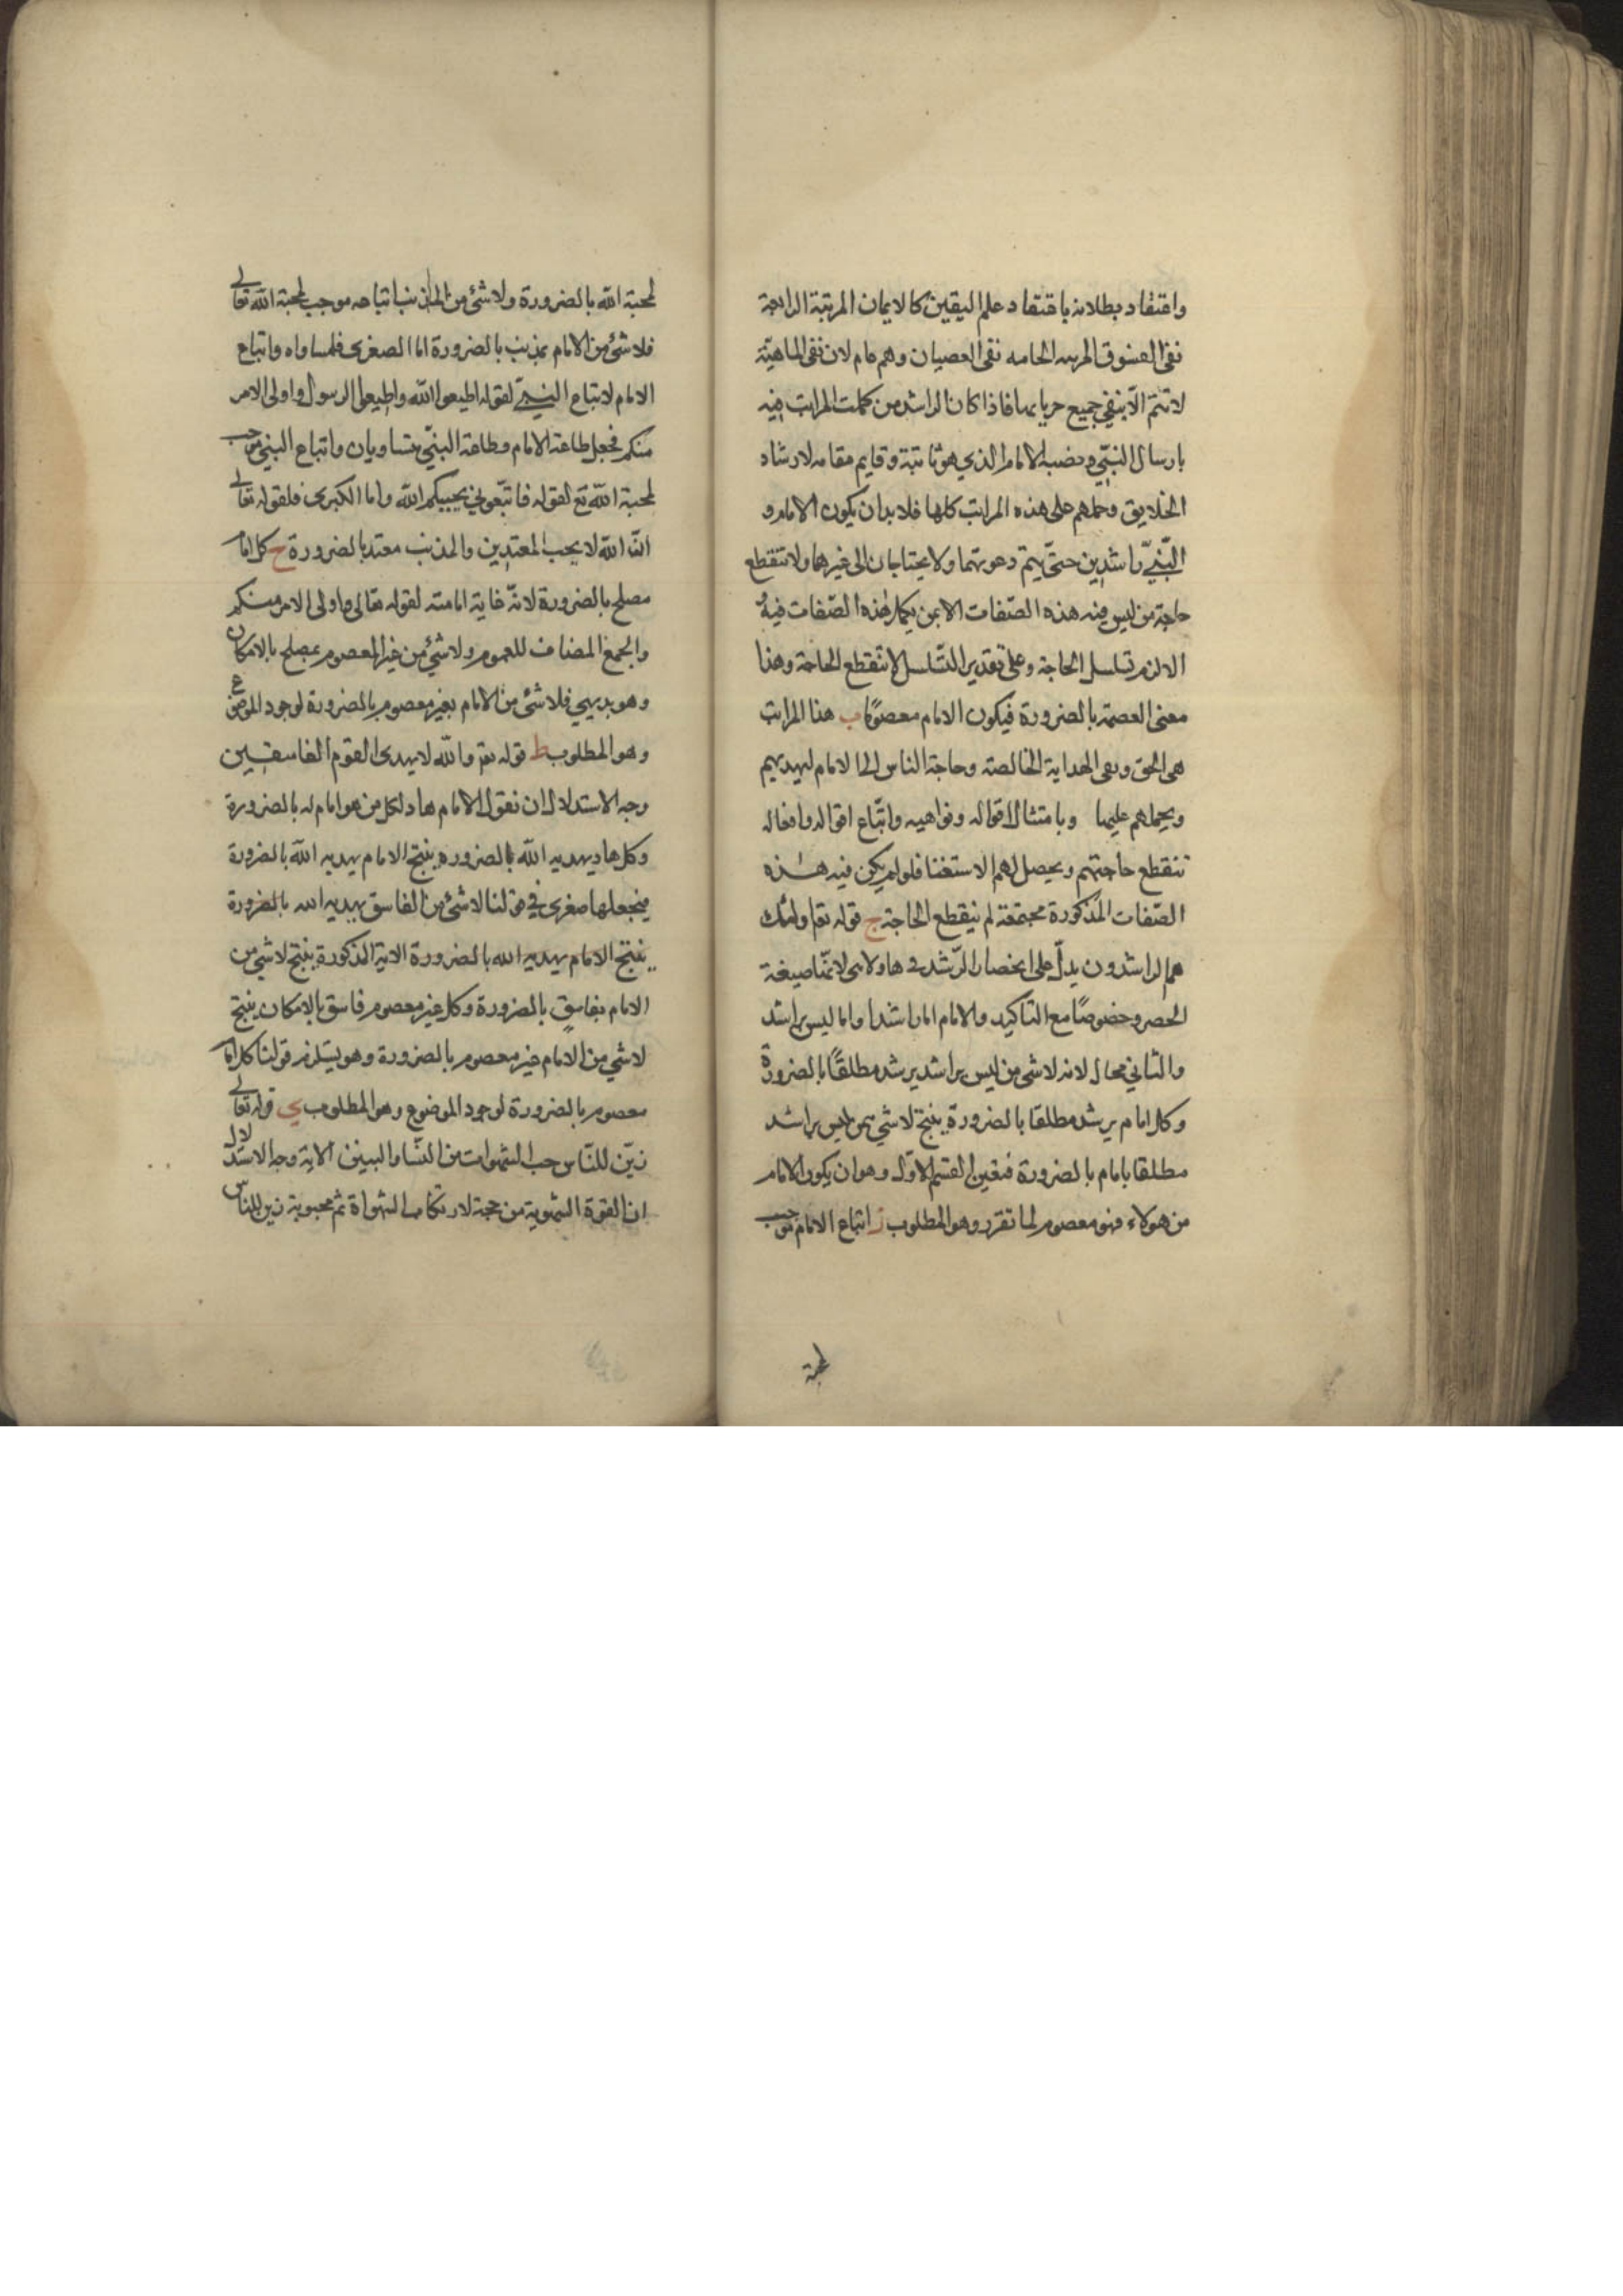 واعتقاد بطلانه باعتقاد علم اليقين كالايمان المرتبة الرابعة
نفى الفسوق المرتبه الخامه نفى العصيان وهم عام لان نفى الماهيّة
لا تتمّ الّا بنفي جميع جزياتها فاذا كان الراشد من كملت المراتب فيه
بارسال النبّي ونصبه الامام الذي هو نائبة وقايم مقامه لارشاد
الخلايق وحملهم على هذه المراتب كلها فلا بد ان يكون الامام و
النّبيّ راشدين حتّى يتم دعوتهما ولا يحتاجان الى غيرهما ولا تنقطع
حاجة من ليس فيه هذه الصّفات الا بمن يكمل هذه الصّفات فيه و
الا لزم تسلسل الحاجة وعلى تقدير التّسلسل لا تنقطع الحاجة وهذا
معنى العصمة بالضرورة فيكون الامام معصومًا ب هذا المراتب
هى الحق وهى الهداية الخالصته وحاجة الناس الى الامام ليهديهم
ويحملهم عليها وبامتثال اقواله ونواهيه واتّباع اقواله وافعاله
تنقطع حاجتهم ويحصل لهم الاستغنا فلو لم يكن فيه هذه
الصّفات المذكورة مجتمعة لم ينقطع الحاجة ج قوله تعا اولئك
هم الراشدون يدلّ على انحصار الرّشد في هاولاى لانّها صيغة
الحصر وخصوصًا مع التاكيد والامام اما راشدا واما ليس براشد
والثاني محال لانه لا شى من ليس براشد يرشد مطلقًا بالضرورة
وكل امام يرشد مطلقا بالضرورة ينتج لا شي ممن ليس براشد
مطلقا بامام بالضرورة فتعين القسم الاوّل وهو ان يكون الامام
من هولاء فهو معصوم لما تقرر وهو المطلوب ز اتباع الامام موجب
لمحبة
لمحبة الله بالضرورة ولا شئ من المذنب اتباعه موجب لمحبة الله تعالى
فلا شئ من الامام بمذنب بالضرورة اما الصغرى فلمساواه واتباع
الامام لاتباع النبيّ لقوله اطيعوا الله واطيعوا الرسول واولى الامر
منكم فجعل طاعة الامام وطاعة النبيّ متساويان واتباع النبي موجب
لمحبة الله تع لقوله فاتّبعوني يحببكم الله واما الكبرى فلقوله تعالى
انّ الله لا يحب المعتدين والمذنب معتد بالضرورة ح كل امام
مصلح بالضرورة لانّه غاية امامته لقوله تعالى واولى الامر منكم
والجمع المضاف للعموم ولا شئ من غير المعصوم بمصلح بالامكان
وهو بديهي فلا شئ من الامام بغير معصوم بالضرورة لوجود الموضوع
وهو المطلوب ط قوله تعا والله لا يهدى القوم الفاسقين
وجه الاستدلال ان نقول الامام هاد لكل من هو امام له بالضرورة
وكل هاد يهديه الله بالضروره ينتج الامام يهديه الله بالضرورة
فيجعلها صغرى في قولنا لا شئ من الفاسق يهديه الله بالضرورة
ينتج الامام يهديه الله بالضرورة الاية المذكورة ينتج لا شي من
الامام بفاسق بالضرورة وكل غير معصوم فاسق بالامكان ينتج
لا شي من الامام غير معصوم بالضرورة وهو يستلزم قولنا كل امام
معصوم بالضرورة لوجود الموضوع وهو المطلوب ي قوله تعالى
زيّن للنّاس حب الشهوات من النّسا والبنين الاية وجه الاستدلال
ان القوة الشهوية من جهة لارتكاب الشهواة ثم محبوبة زين للناس